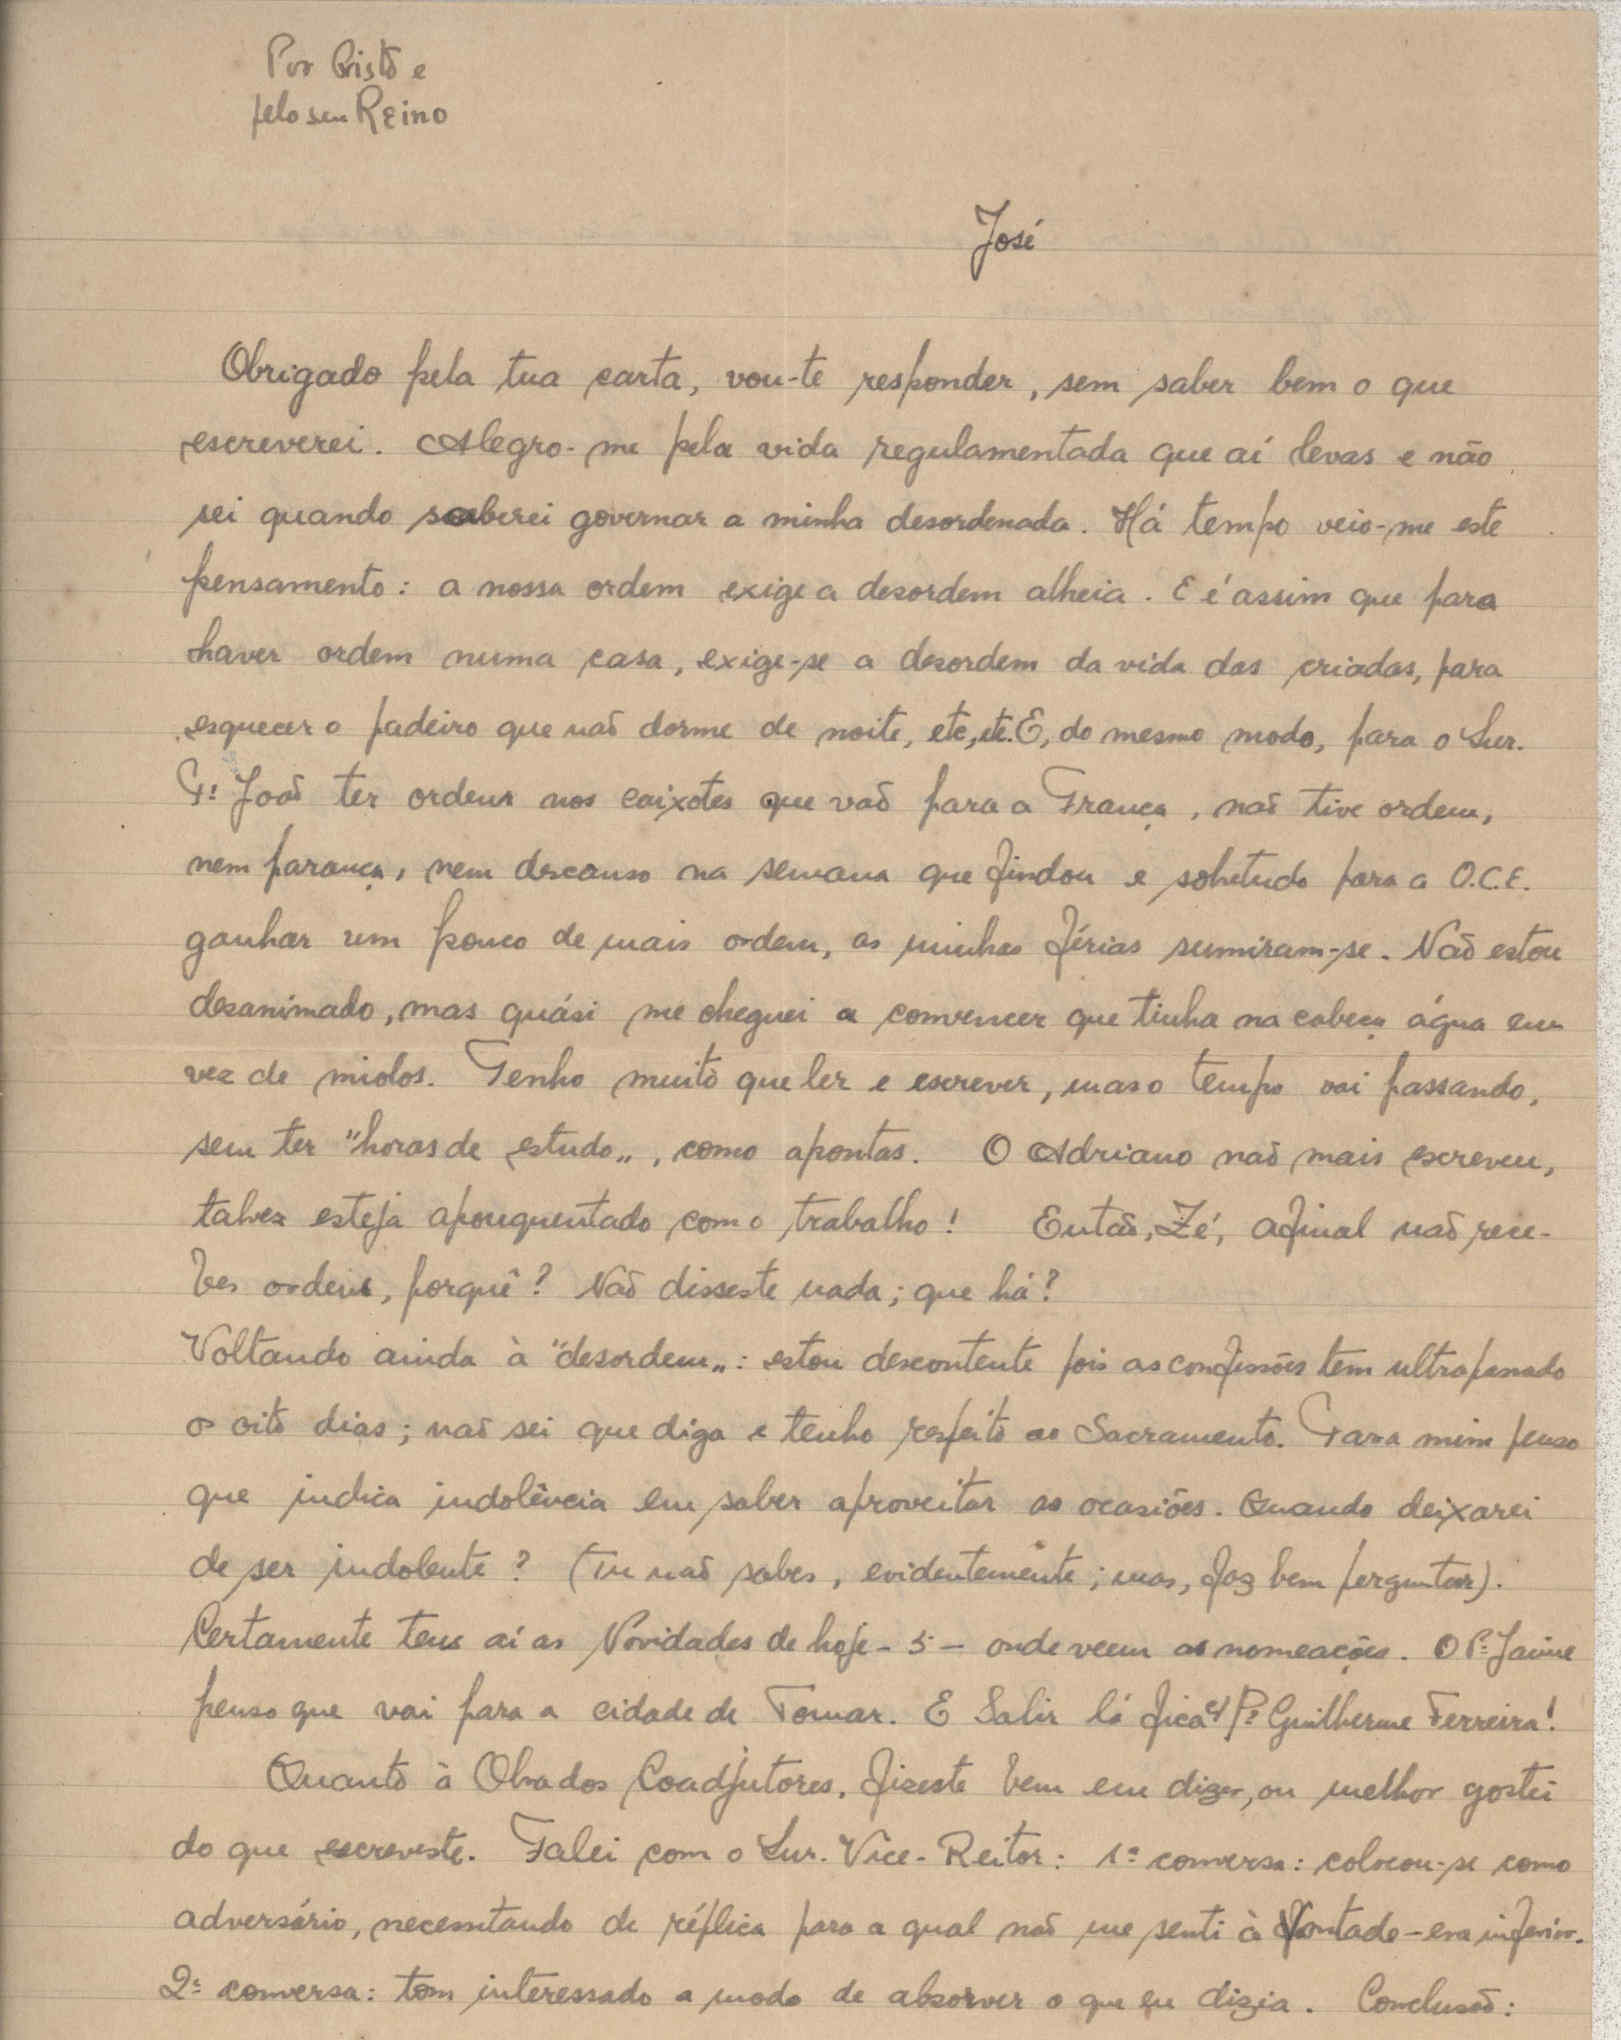 Por Cristo e
pelo seu Reino
José
Obrigado pela tua carta, vou-te responder, sem saber bem o que
escreverei. Alegro-me pela vida regulamentada que aí levas e não
sei quando saberei governar a minha desordenada. Há tempo veio-me este
pensamento: a nossa ordem exige a desordem alheia. E é assim que para
haver ordem numa casa, exige-se a desordem da vida das criadas, para
esquecer o padeiro que não dorme de noite, etc, etc. E, do mesmo modo, para o Snr.
P.e João ter ordem nos caixotes que vão para a França, não tive ordem,
nem parança, nem descanso na semana que findou e sobretudo para a O.C.E.
ganhar um pouco de mais ordem, as minhas férias sumiram-se. Não estou
desanimado, mas quási me cheguei a convencer que tinha na cabeça água em
vez de miolos. Tenho muito que ler e escrever, mas o tempo vai passando,
sem ter "horas de estudo„, como apontas. O Adriano não mais escreveu,
talvez esteja apouquentado com o trabalho! Então, Zé, afinal não rece-
bes ordens, porquê? Não disseste nada; que há?
Voltando ainda à "desordem„: estou descontente pois as confissões tem ultrapassado
os oito dias; não sei que diga e tenho respeito ao Sacramento. Para mim penso
que indica indolência em saber aproveitar as ocasiões. Quando deixarei
de ser indolente? (Tu não sabes, evidentemente; mas, faz bem perguntar).
Certamente tens aí as Novidades de hoje - 5 - onde veem as nomeações. O P.e Jaime
penso que vai para a cidade de Tomar. E Salir lá fica c/ P.e Guilherme Ferreira!
Quanto à Obra dos Coadjutores, fizeste bem em dizer, ou melhor gostei
do que escreveste. Falei com o Snr. Vice-Reitor: 1ª conversa: colocou-se como
adversário, necessitando de réplica para a qual não me senti à vontade - era inferior.
2ª conversa: tom interessado a modo de absorver o que eu dizia. Conclusão: